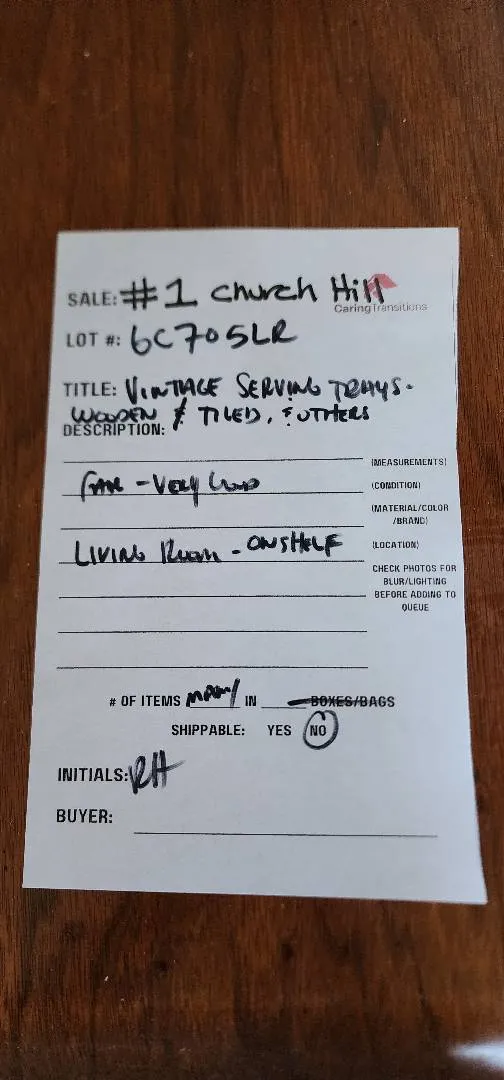 SALE: #1 Church Hill
CaringTransitions
LOT #: 6C705LR
TITLE: VINTAGE SERVING TRAYS.
WOODEN & TILED, & OTHERS
DESCRIPTION:
(MEASUREMENTS)
FAIR - VERY GOOD (CONDITION)
(MATERIAL/COLOR
/BRAND)
LIVING ROOM - ON SHELF (LOCATION)
CHECK PHOTOS FOR
BLUR/LIGHTING
BEFORE ADDING TO
QUEUE
# OF ITEMS MANY IN BOXES/BAGS
SHIPPABLE: YES NO
INITIALS: RH
BUYER: